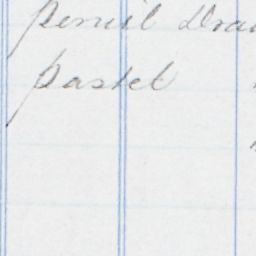 pencil Draw
pastel